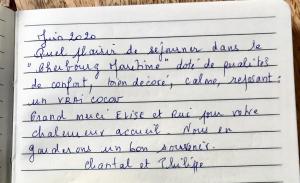 Juin 2020
Quel plaisir de séjourner dans le
"Cherbourg Maritime" doté de qualités
de confort, bien décoré, calme, reposant :
un VRAI cocon
Grand merci Elise et Rui pour votre
chaleureux accueil. Nous en
garderons un bon souvenir.
Chantal et Philippe